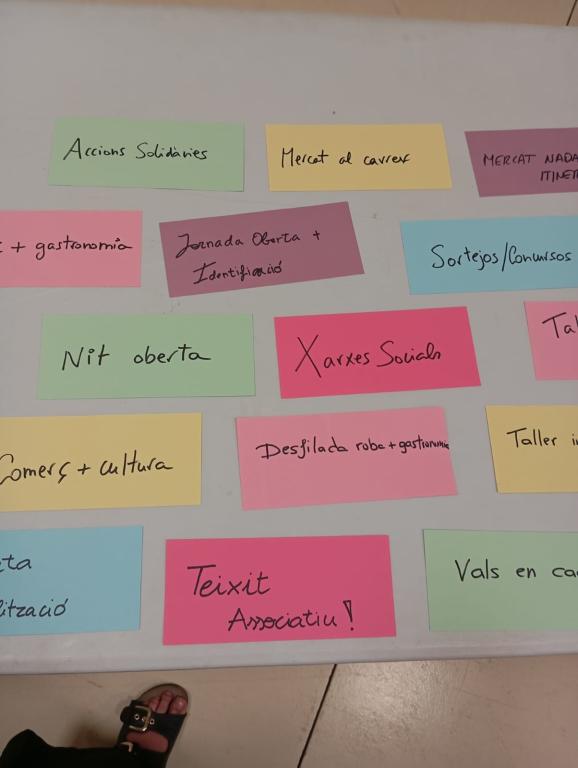 Accions Solidàries
Mercat al carrer
MERCAT NADA
ITINER
+ gastronomia
Jornada Oberta +
Identificació
Sortejos/Concursos
Nit oberta
Xarxes Socials
Tal
Comerç + cultura
Desfilada roba + gastronomia
Taller i
eta
lització
Teixit
Associatiu!
Vals en ca